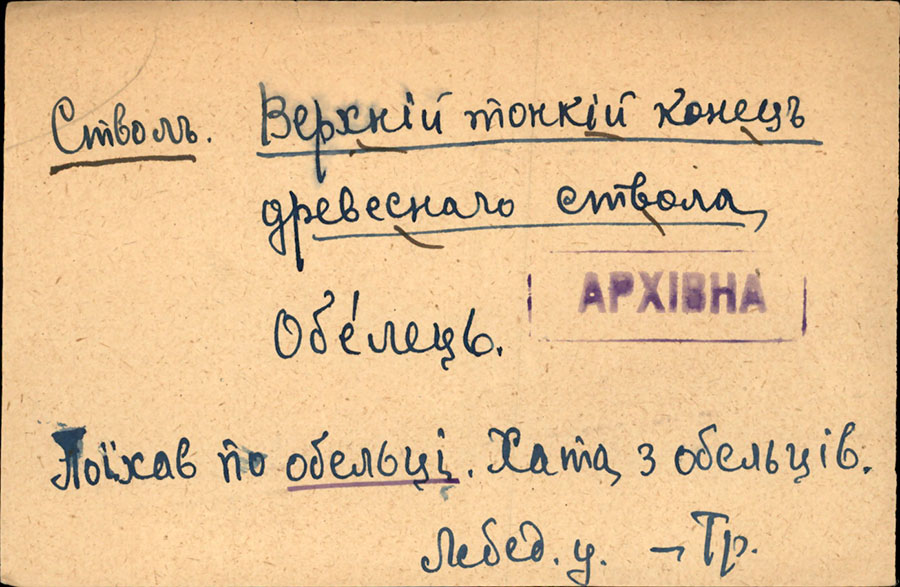 Стволъ. Верхній тонкій конецъ
древеснаго ствола,
АРХІВНА
Обе́лець.
Поїхав по обельці. Хата з обельців.
Лебед. у. – Тр.